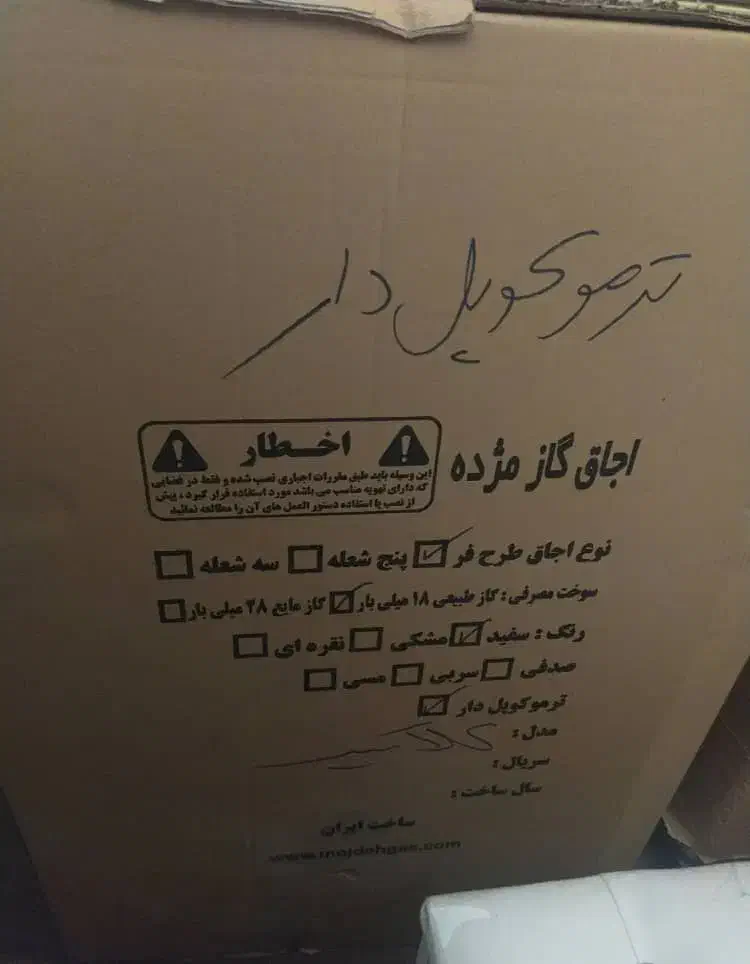 ترموکوپل دار
اجاق گاز مژده
اخطار
این وسیله باید طبق مقررات اجباری نصب شده و فقط در فضایی
که دارای تهویه مناسب می باشد مورد استفاده قرار گیرد، پیش
از نصب یا استفاده دستور العمل های آن را مطالعه نمائید
نوع اجاق طرح فر پنج شعله سه شعله
سوخت مصرفی: گاز طبیعی ۱۸ میلی بار گاز مایع ۲۸ میلی بار
رنگ: سفید مشکی نقره ای
صدفی سربی مسی
ترموکوپل دار
مدل: کلاسیک
سریال:
سال ساخت:
ساخت ایران
www.mojdehgas.com